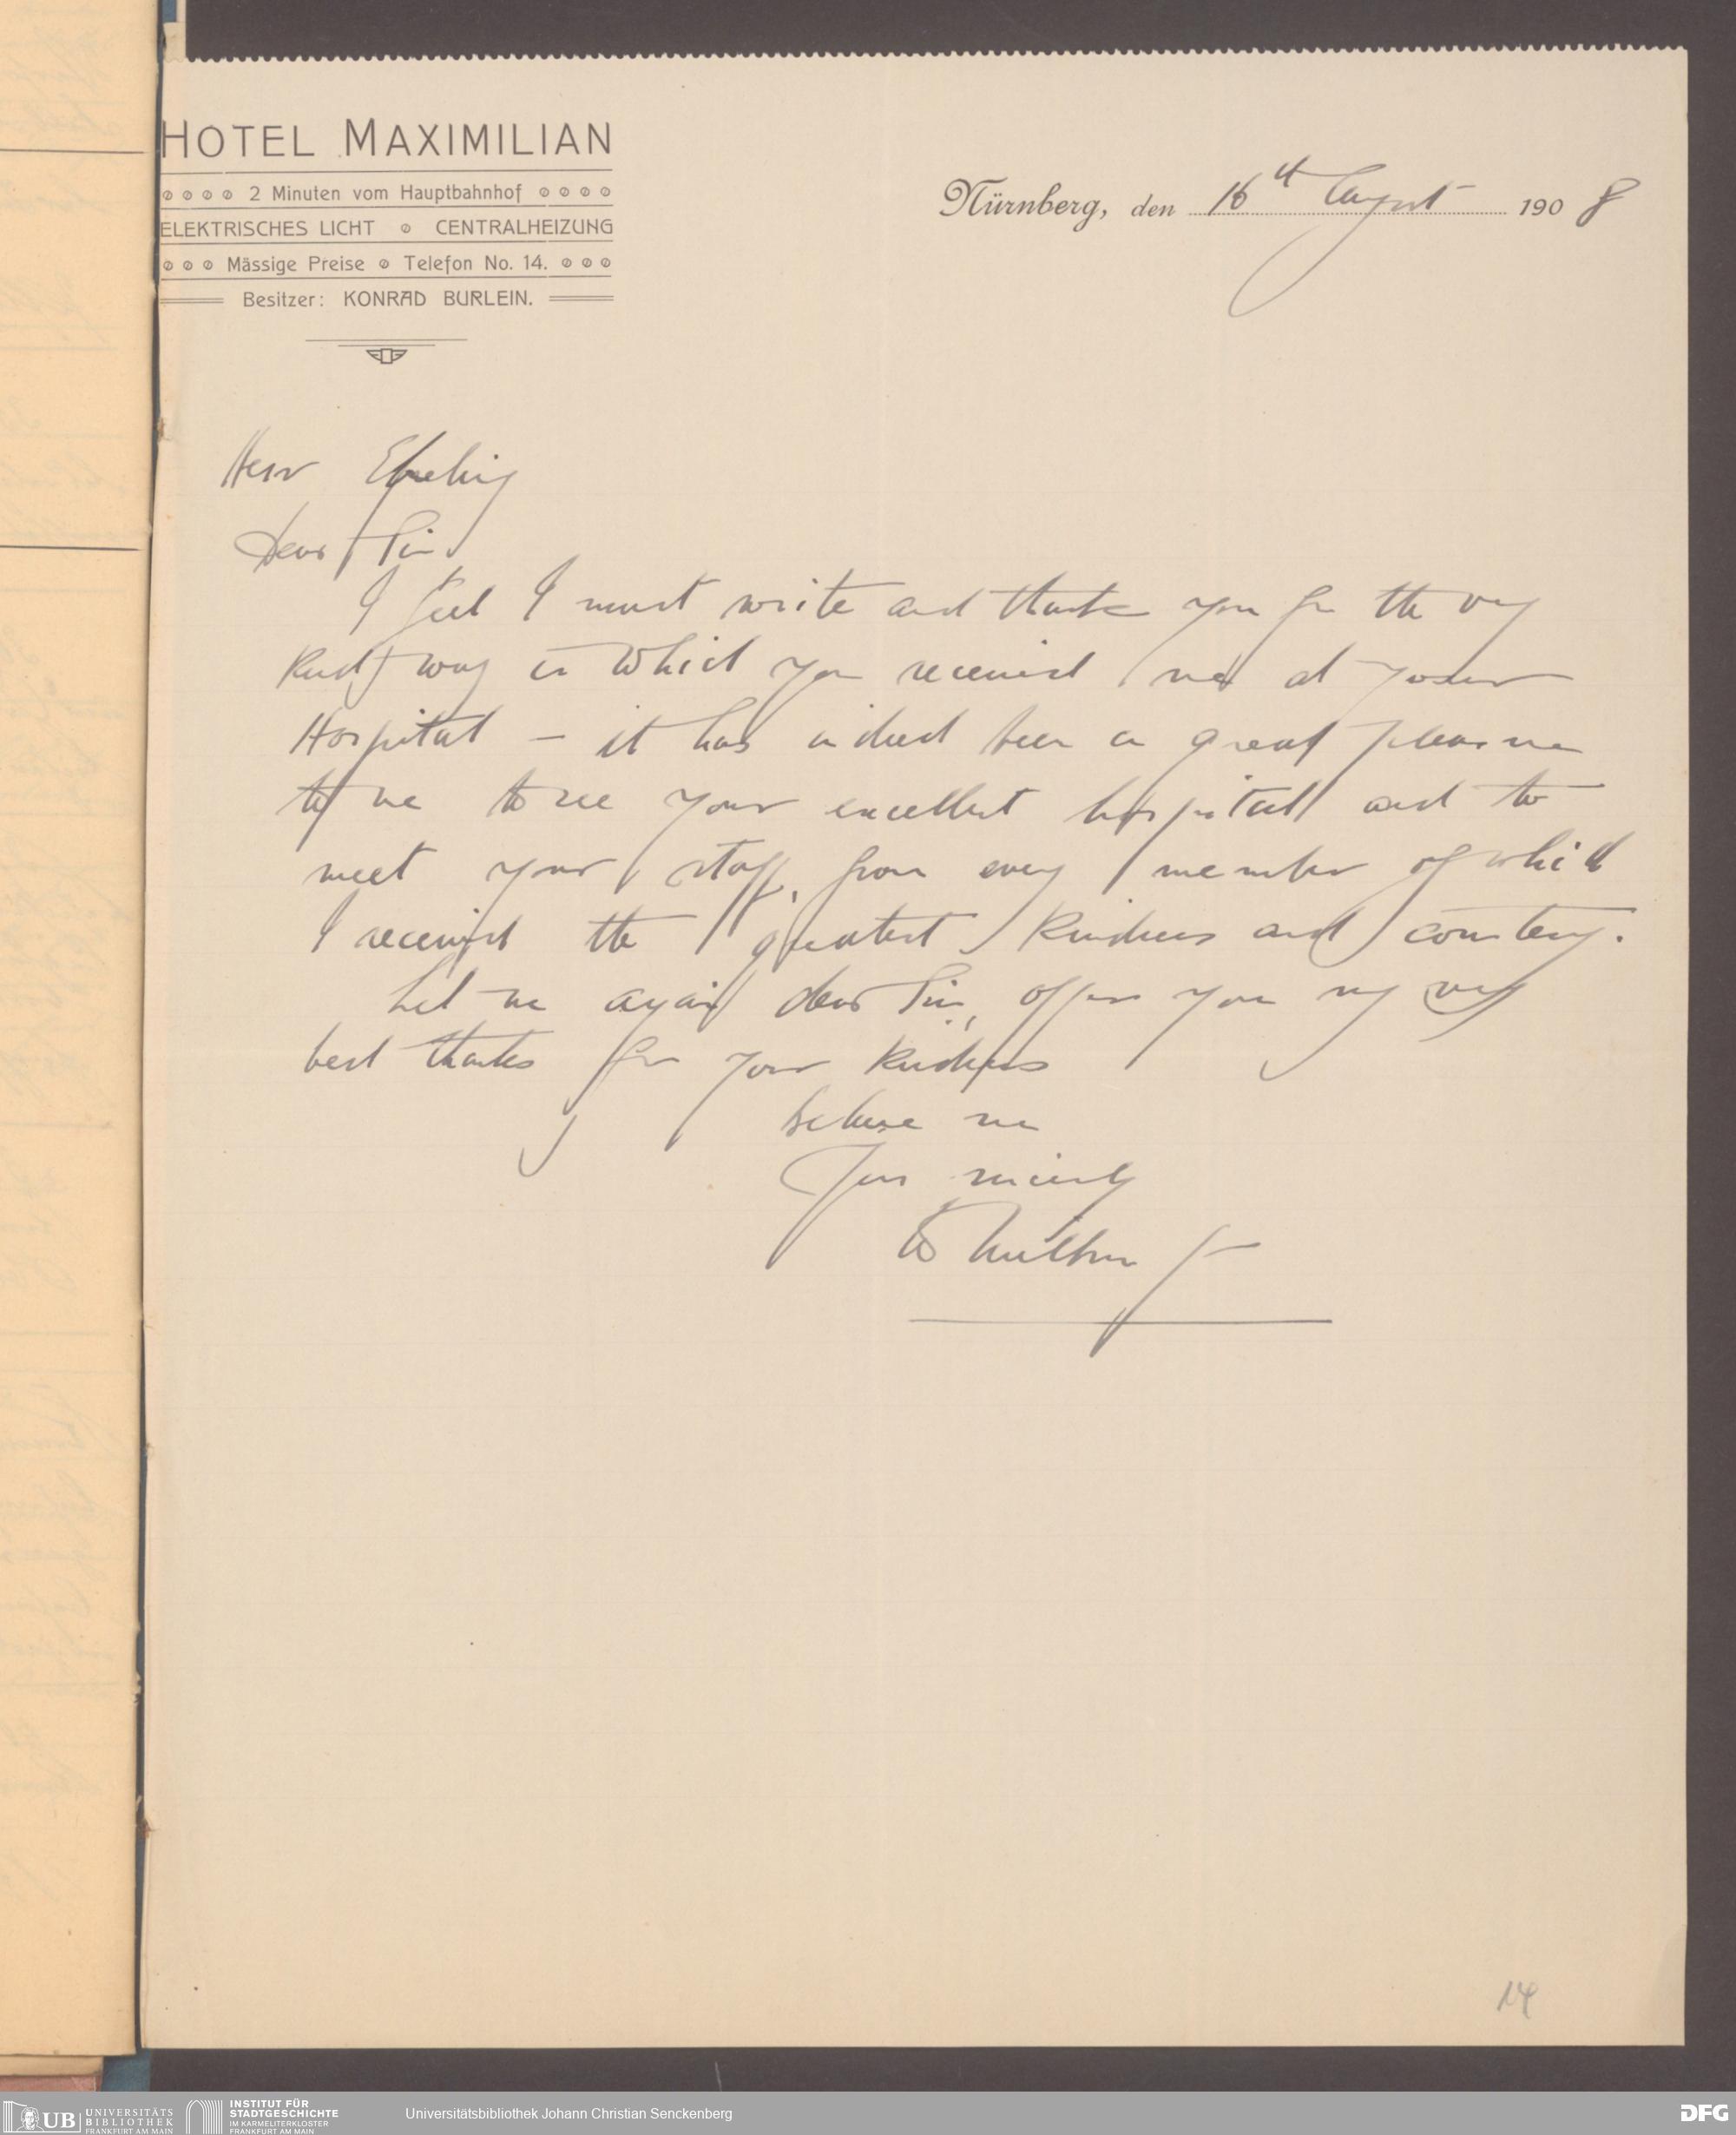 HOTEL MAXIMILIAN
2 Minuten vom Hauptbahnhof
ELEKTRISCHES LICHT CENTRALHEIZUNG
Mässige Preise Telefon No. 14.
Besitzer: KONRAD BURLEIN.
Nürnberg, den 16th August 1908
Herr
Dear Sir
I feel I must write and thank you for the very
kind way in which you received me at your
Hospital – it has indeed been a great pleasure
to me to see your excellent hospital and to
meet your staff, from every member of which
I received the greatest kindness and courtesy.
Let me again dear Sir, offer you my very
best thanks for your kindness
believe me
Yours sincerely
14
UB UNIVERSITÄTS
BIBLIOTHEK
FRANKFURT AM MAIN
INSTITUT FÜR
STADTGESCHICHTE
IM KARMELITERKLOSTER
FRANKFURT AM MAIN
Universitätsbibliothek Johann Christian Senckenberg
DFG